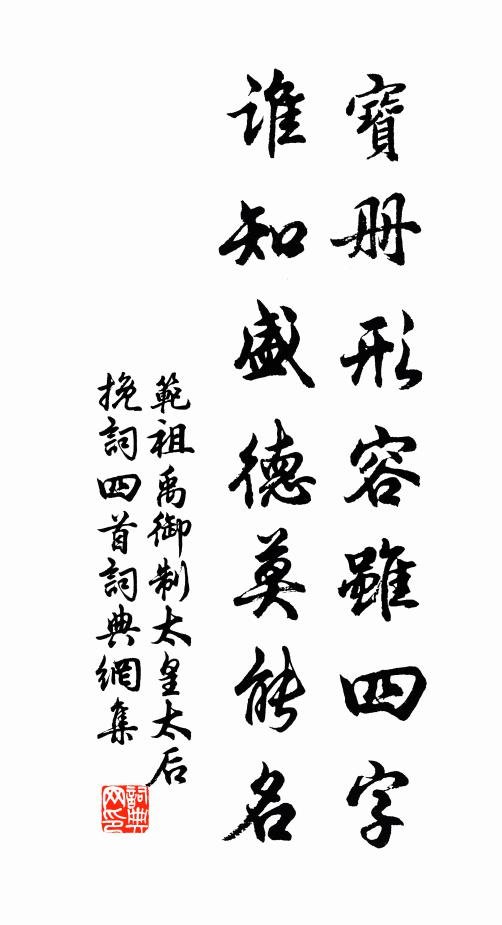 寶册形容雖四字
谁知盛德莫能名
範祖禹御制太皇太后
挽詞四首詞典網集
詞典网印